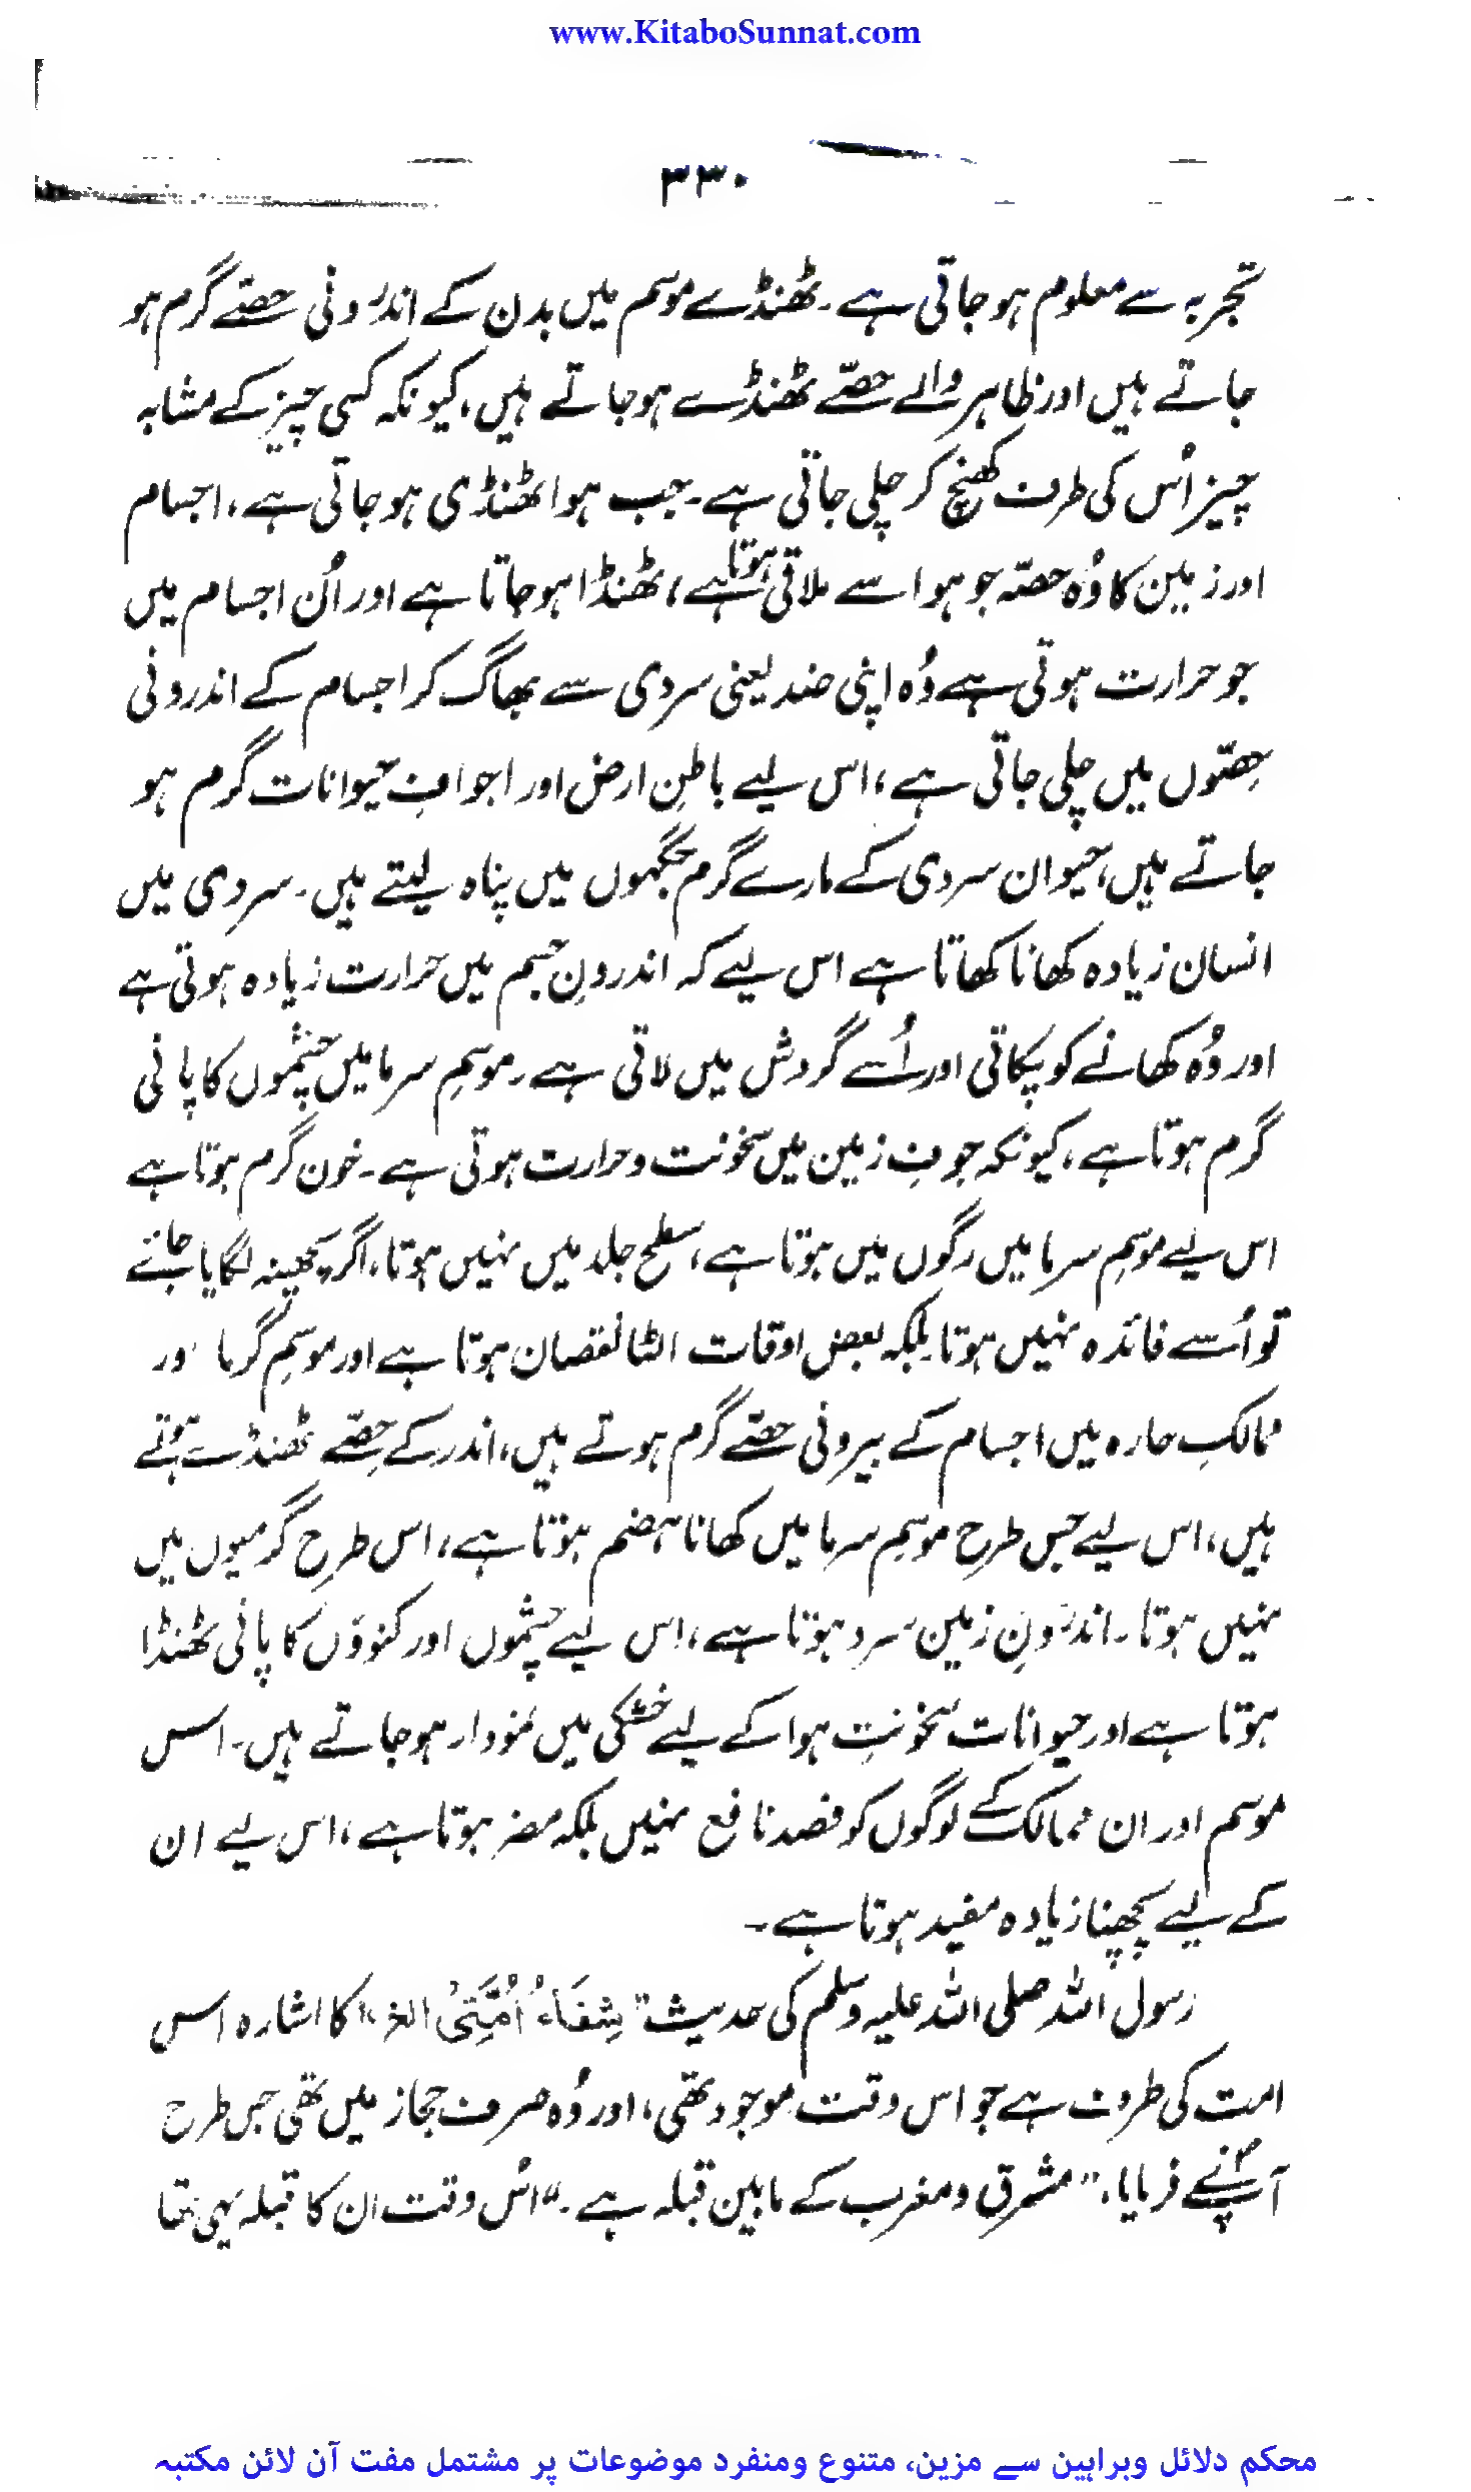 www.KitaboSunnat.com
۳۳۰
تجربہ سے معلوم ہو جاتی ہے۔ ٹھنڈے موسم میں بدن کے اندرونی حصّے گرم ہو
جاتے ہیں اور ظاہر والے حصّے ٹھنڈے ہو جاتے ہیں، کیونکہ کسی چیز کے مشابہ
چیز اُس کی طرف کھنچ کر چلی جاتی ہے۔ جب ہوا ٹھنڈی ہو جاتی ہے، اجسام
اور زمین کا وُہ حصّہ جو ہوا سے ملاقی ہوتا ہے، ٹھنڈا ہو جاتا ہے اور اُن اجسام میں
جو حرارت ہوتی ہے وُہ اپنی ضد یعنی سردی سے بھاگ کر اجسام کے اندرونی
حِصّوں میں چلی جاتی ہے، اس لیے باطنِ ارض اور اجوافِ حیوانات گرم ہو
جاتے ہیں، حیوان سردی کے مارے گرم جگہوں میں پناہ لیتے ہیں۔ سردی میں
انسان زیادہ کھانا کھاتا ہے اس لیے کہ اندرونِ جسم میں حرارت زیادہ ہوتی ہے
اور وُہ کھانے کو پکاتی اور اُسے گردش میں لاتی ہے۔ موسمِ سرما میں چشموں کا پانی
گرم ہوتا ہے، کیونکہ جوفِ زمین میں سخونت و حرارت ہوتی ہے۔ خون گرم ہوتا ہے
اس لیے موسمِ سرما میں رگوں میں ہوتا ہے، سطح جلد میں نہیں ہوتا، اگر پچھنہ لگایا جائے
تو اُسے فائدہ نہیں ہوتا بلکہ بعض اوقات الٹا نقصان ہوتا ہے اور موسمِ گرما اور
ممالکِ حارہ میں اجسام کے بیرونی حصّے گرم ہوتے ہیں، اندر کے حِصّے ٹھنڈے ہوتے
ہیں، اس لیے جس طرح موسمِ سرما میں کھانا ہضم ہوتا ہے، اس طرح گرمیوں میں
نہیں ہوتا۔ اندرُونِ زمین سرد ہوتا ہے، اس لیے چشموں اور کنوؤں کا پانی ٹھنڈا
ہوتا ہے اور حیوانات سخونتِ ہوا کے لیے خشکی میں نمودار ہو جاتے ہیں۔ اس
موسم اور ان ممالک کے لوگوں کو فصد نافع نہیں بلکہ مضر ہوتا ہے، اس لیے ان
کے لیے پچھنا زیادہ مفید ہوتا ہے۔
رسول اللہ صلی اللہ علیہ وسلم کی حدیث "شِفَاءُ اُمَّتِیْ الخ" کا اشارہ اس
امت کی طرف ہے جو اس وقت موجود تھی، اور وُہ صرف حجاز میں تھی جس طرح
آپؐ نے فرمایا، "مشرق و مغرب کے مابین قبلہ ہے۔" اُس وقت ان کا قبلہ یہی تھا
محکم دلائل وبراہین سے مزین، متنوع ومنفرد موضوعات پر مشتمل مفت آن لائن مکتبہ